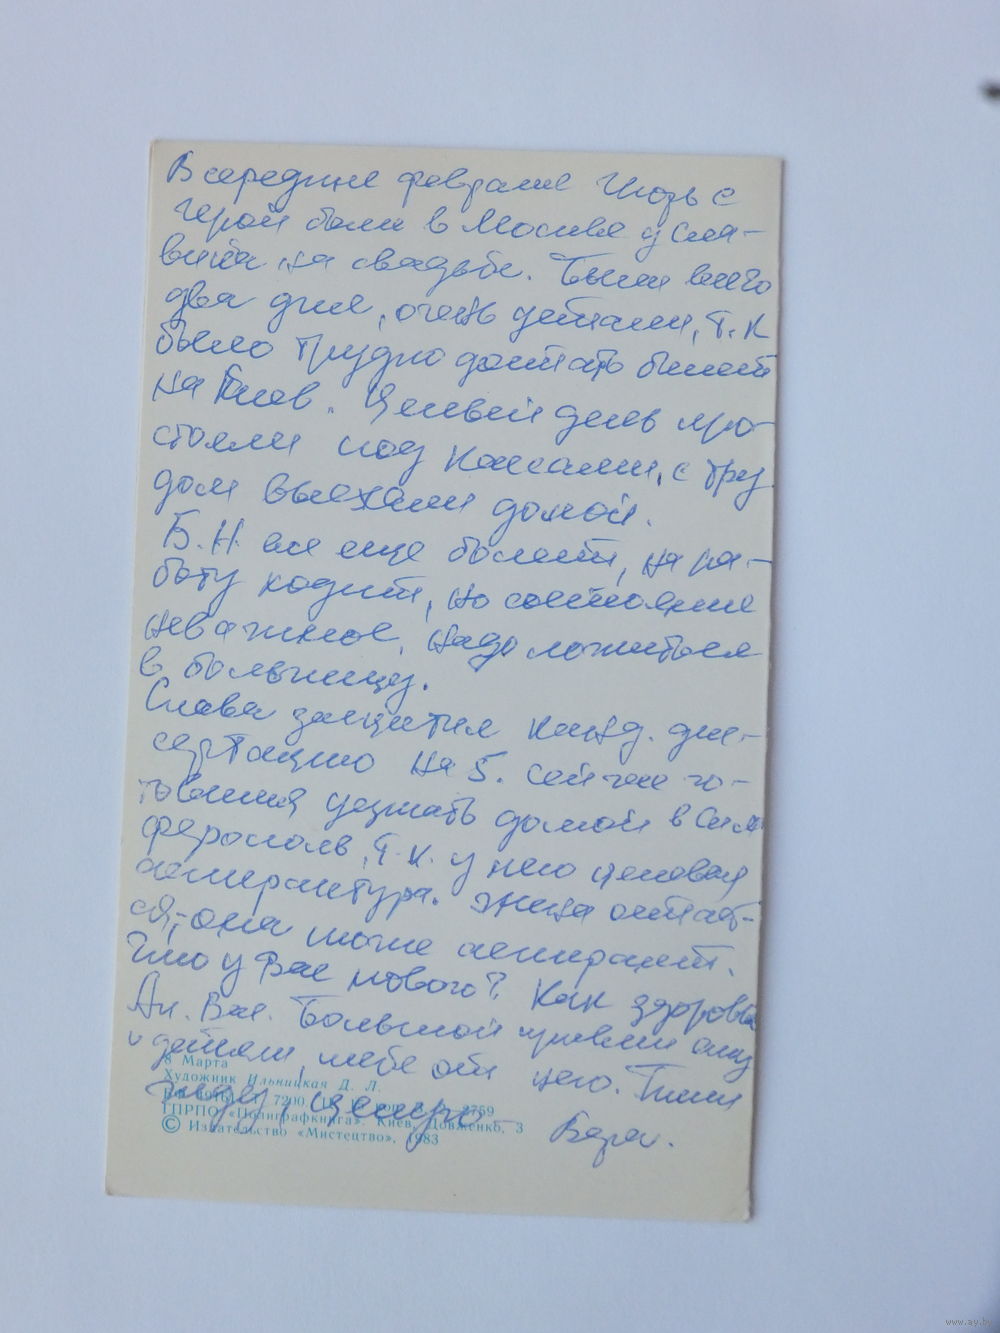 В середине февраля Игорь с
Герой были в Москве у Сла-
вика на свадьбе. Были всего
два дня, очень устали, т.к
было трудно достать билет
на Киев. Целый день про-
стояли под кассами, с тру
дом выехали домой.
Б.Н. все еще болеет, на ра-
боту ходит, но состояние
неважное, надо ложиться
в больницу.
Слава защитил канд. дис-
сертацию на 5. Сейчас го-
товится уезжать домой в Сим
ферополь, т.к. у него целевая
аспирантура. Жена остает-
ся, она тоже аспирант.
Что у Вас нового? Как здоровье
Ан. Вас. Большой привет ему
и детям, тебе от него. Пиши
жду, целую
Вера.
8 Марта
Художник Ильницкая Д. Л.
7200. 2759
ГПРПО «Полиграфкнига». Киев, Довженко, 3
© Издательство «Мистецтво», 1983
www.ay.by